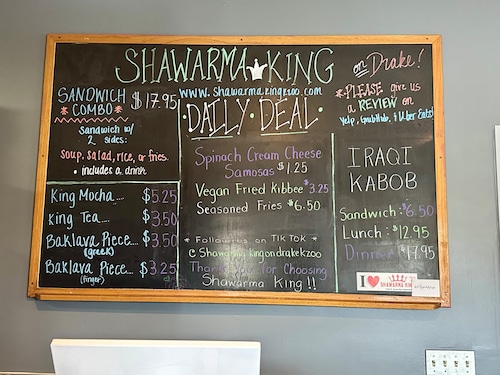 SHAWARMA KING
on Drake!
www.shawarmakingkzoo.com
SANDWICH $17.95
COMBO
Sandwich w/
2 sides:
soup, salad, rice, or fries.
• includes a drink
King Mocha.... $5.25
King Tea.... $3.50
Baklava Piece.... $3.50
(greek)
Baklava Piece.... $3.25
(finger)
• DAILY • DEAL •
Spinach Cream Cheese
Samosas $1.25
Vegan Fried Kibbee $3.25
Seasoned Fries $6.50
* Follow us on TIKTOK *
@ Shawarmakingondrakekzoo
Thank you for Choosing
Shawarma King!!
*PLEASE give us
a REVIEW on
Yelp, GrubHub, & Uber Eats!
IRAQI
KABOB
Sandwich: $6.50
Lunch: $12.95
Dinner: $17.95
I ♥ SHAWARMA KING